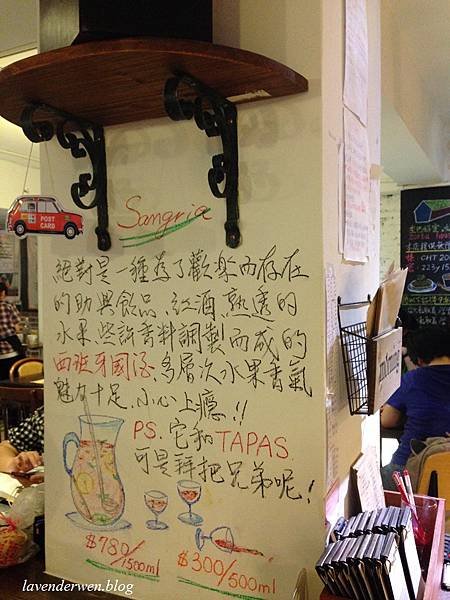 Sangria
絕對是一種為了歡樂而存在
的助興飲品.紅酒.熟透的
水果.些許香料調製而成的
西班牙國酒.多層次水果香氣
魅力十足.小心上癮!!
PS.它和TAPAS
可是拜把兄弟呢!
$780/1500ml
$300/500ml
POST
CARD
lavenderwen.blog